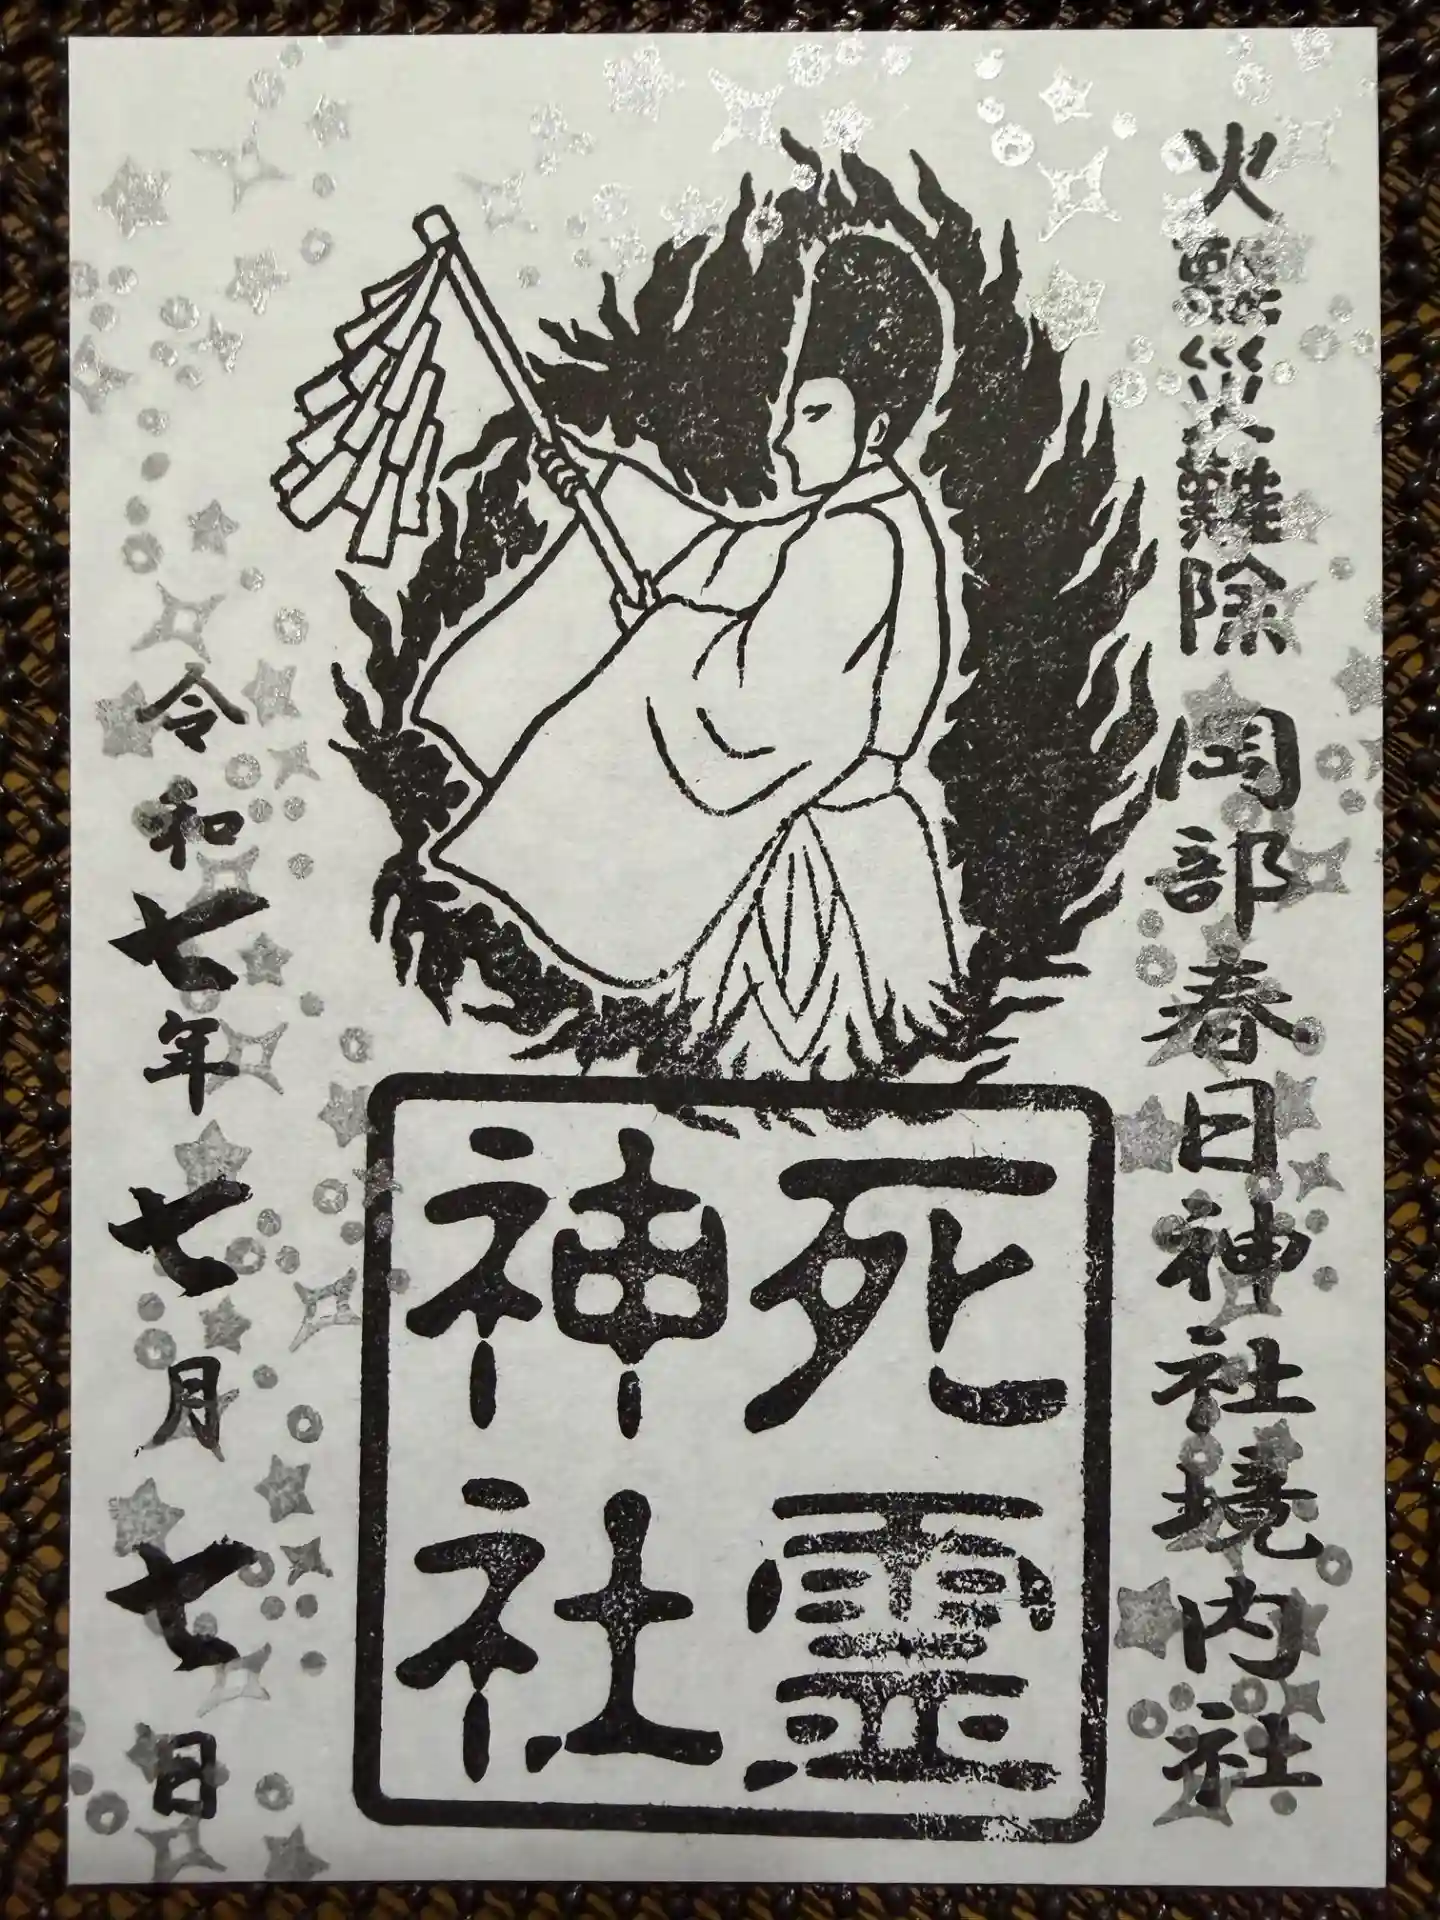 火災難除 岡部春日神社境内社
死霊
神社
令和七年七月七日